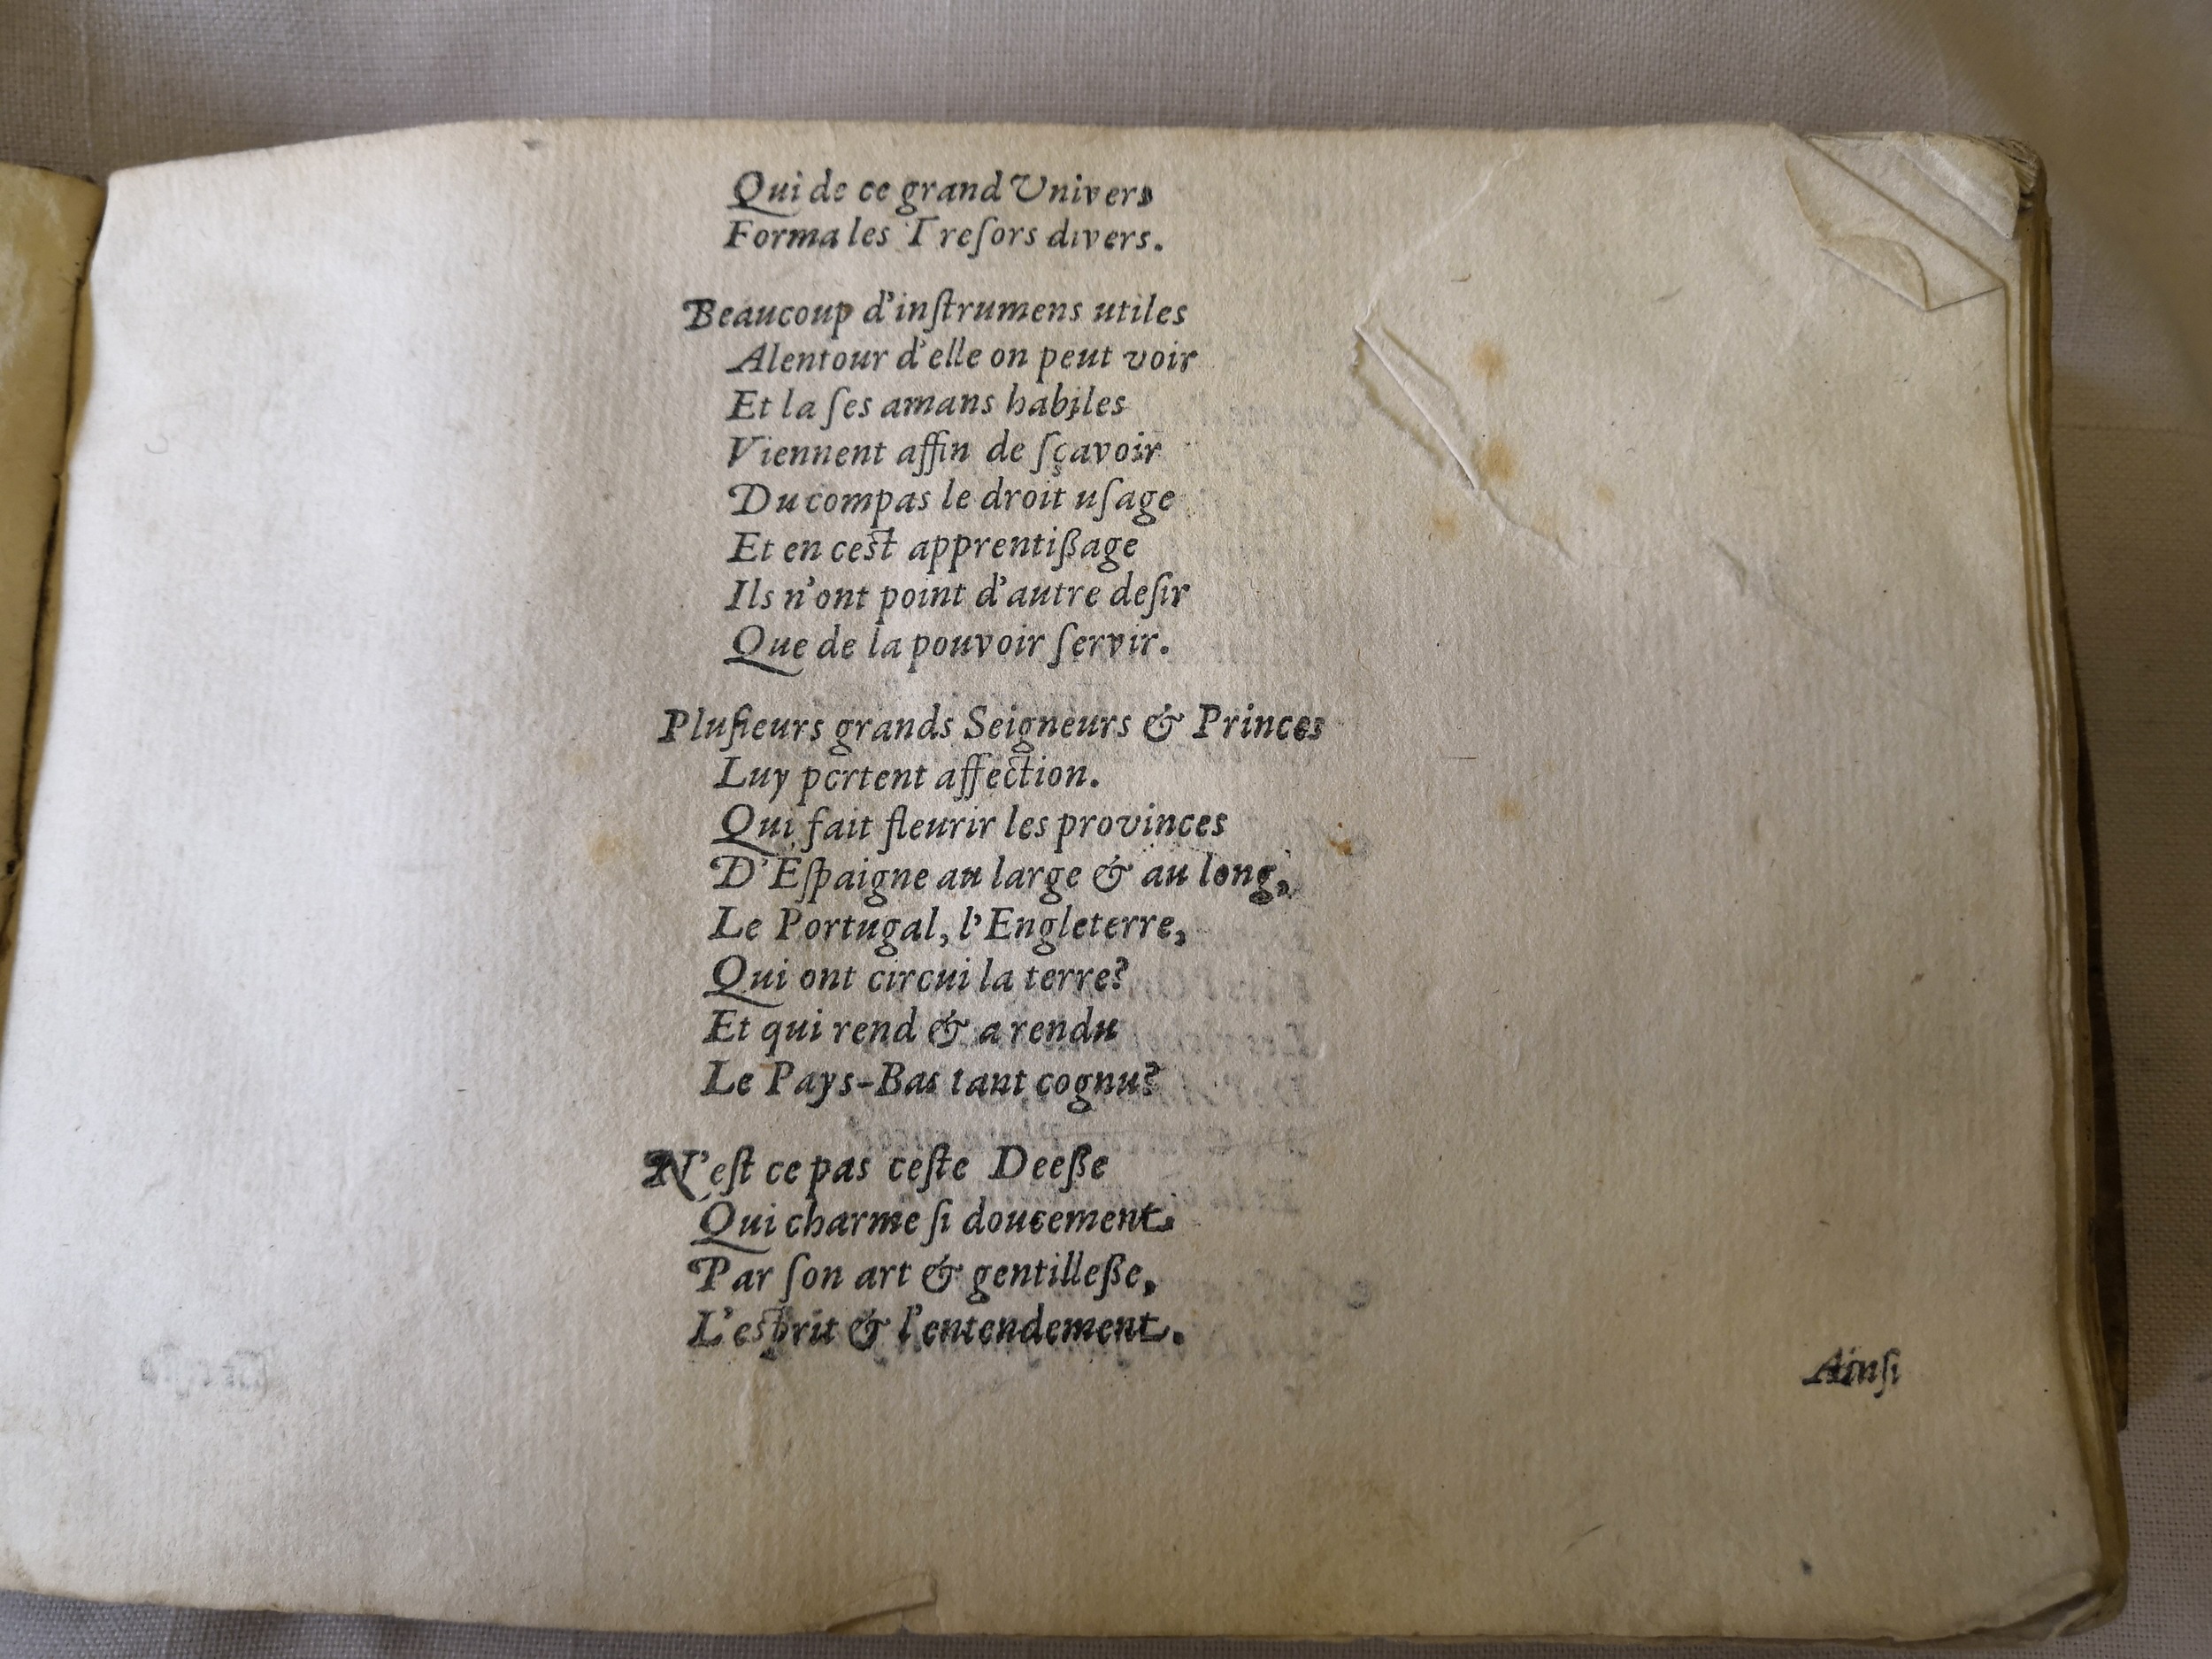 Qui de ce grand Univers
Forma les Treſors divers.
Beaucoup d'inſtrumens utiles
Alentour d'elle on peut voir
Et la ſes amans habiles
Viennent affin de ſçavoir
Du compas le droit uſage
Et en ceſt apprentißage
Ils n'ont point d'autre deſir
Que de la pouvoir ſervir.
Pluſieurs grands Seigneurs & Princes
Luy portent affection.
Qui fait fleurir les provinces
D'Eſpaigne au large & au long,
Le Portugal, l'Engleterre,
Qui ont circui la terre?
Et qui rend & a rendu
Le Pays-Bas tant cognu?
N'eſt ce pas ceſte Deeße
Qui charme ſi doucement,
Par ſon art & gentilleße,
L'eſprit & l'entendement.
Ainſi